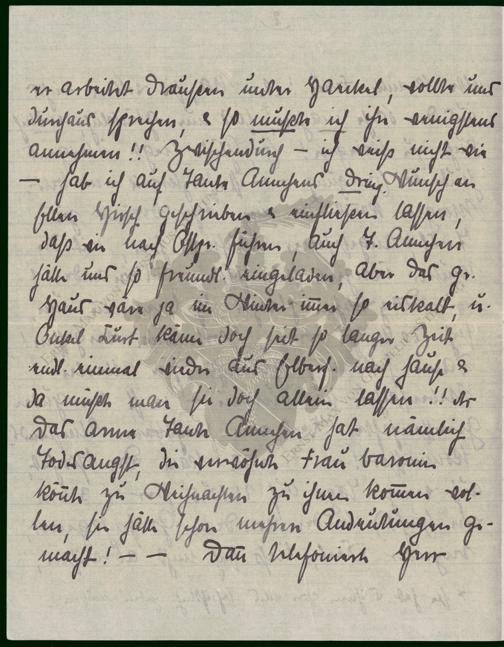 er arbeitet draußen unter Henkel, wollte uns
durchaus sprechen, & so mußte ich ihn wenigstens
annehmen!! Zwischendurch – ich weiß nicht wie
– hab ich auf Tante Annchens dring. Wunsch an
Ellen Hirsch geschrieben & einfließen lassen,
daß wir nach Ostpr. führen, auch T. Annchen
hätte uns so freundl. eingeladen, aber das gr.
Haus wäre ja im Winter immer so eiskalt, u.
Onkel Kurt käme doch seit so langer Zeit
endl. einmal wieder aus Elbersf. nach Hause &
da müßte man sie doch allein lassen!! Ar
Das arme Tante Annchen hat nämlich
Todesangst, die verwöhnte Frau baronin
könnte zu Weihnachten zu ihnen kommen wol-
len, sie hätte schon mehrere Andeutungen ge-
macht! – – Dann telefonierte Herr